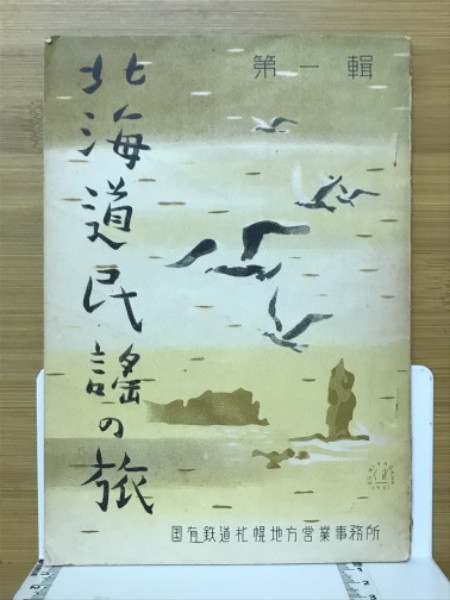 第一輯
北海道民謡の旅
国有鉄道札幌地方営業事務所